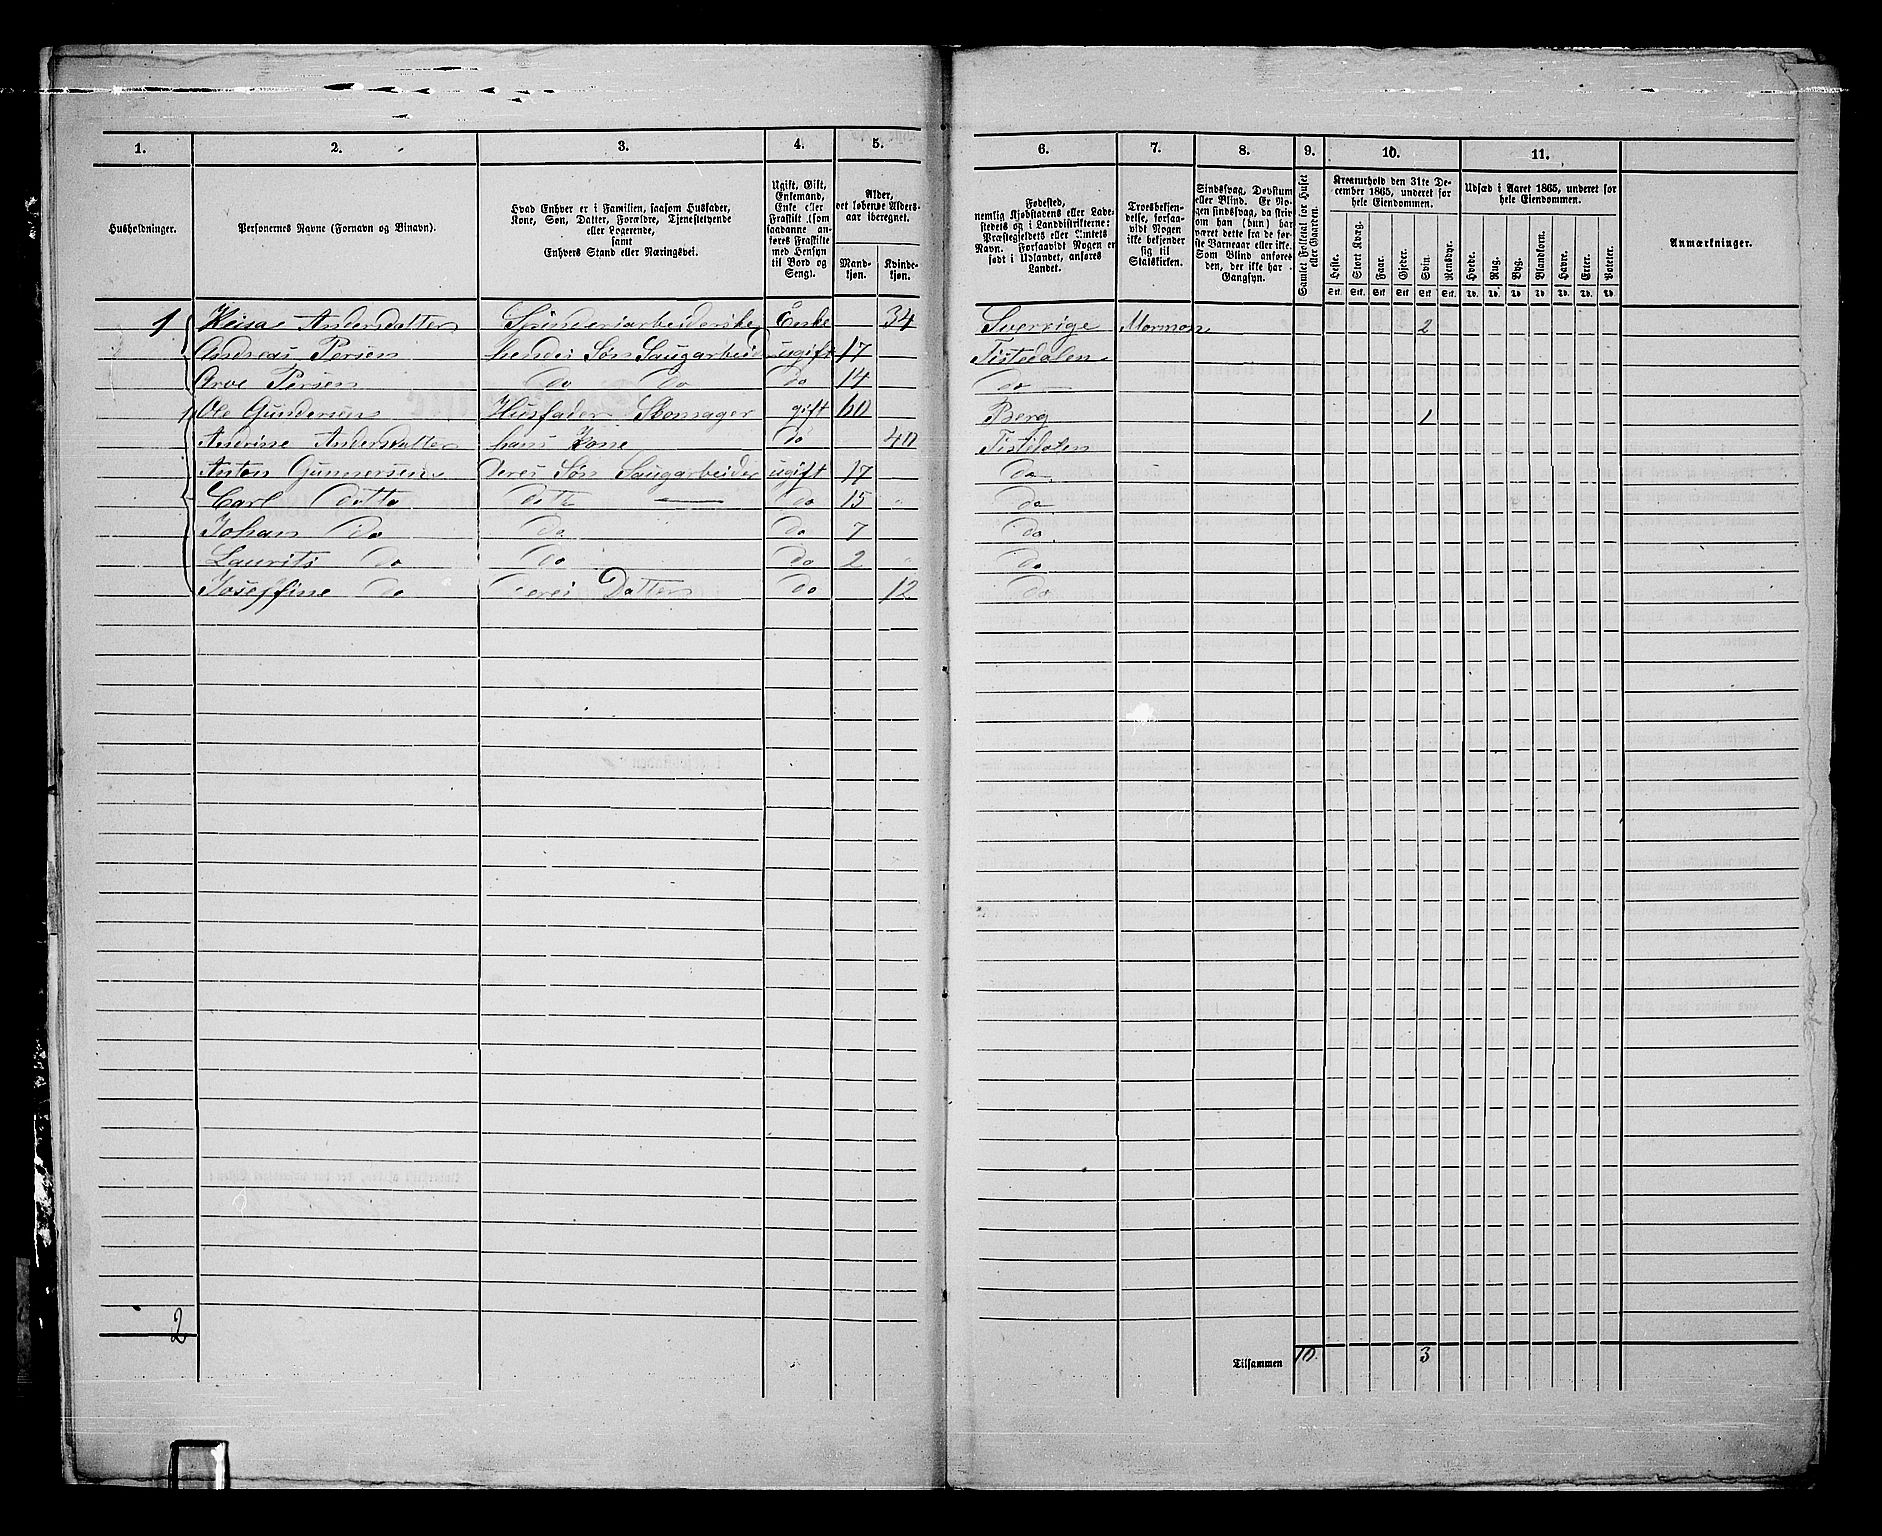 1. 2. 3. 4. 5. 6. 7. 8. 9. 10. 11.
Husholdninger.
Personernes Navne (Fornavn og Binavn).
Hvad Enhver er i Familien, saasom Husfader,
Kone, Søn, Datter, Forældre, Tjenestetyende
eller Logerende,
samt
Enhvers Stand eller Næringsvei.
Ugift, Gift,
Enkemand,
Enke eller
Fraskilt (som
saadanne an-
føres Fraskilte
med Hensyn
til Bord og
Seng).
Alder,
det løbende Alders-
aar iberegnet.
Mand-
kjøn.
Kvinde-
kjøn.
Fødested,
nemlig Kjøbstadens eller Lade-
stedets og i Landdistrikterne:
Præstegjeldets eller Amtets
Navn. Forsaavidt Nogen er
født i Udlandet, anføres
Landet.
Troesbekjen-
delse, forsaa-
vidt Nogen
ikke bekjender
sig til
Statskirken.
Sindssvag, Døvstum
eller Blind. Er No-
gen sindssvag, da skriv
om han (hun) har
været dette fra de før-
ste Barneaar eller ikke.
Som Blind anføres
den, der ikke har
Gangsyn.
Samlet Folketal for Huset
eller Gaarden.
Kreaturhold den 31te De-
cember 1865, underet for
hele Eiendommen.
Heste. Stort Kvæg. Faar. Gjeder. Svin. Rensdyr.
Stk. Stk. Stk. Stk. Stk. Stk.
Udsæd i Aaret 1865, underet for
hele Eiendommen.
Hvede. Rug. Byg. Blandkorn. Havre. Erter. Poteter.
Td. Td. Td. Td. Td. Td. Td.
Anmærkninger.
1 Keisa Andersdatter Spinderiarbeiderske Enke 34 Sverrige Mormon 2
Andreas Persen hendes Søn Saugarbeid ugift 17 Tistedalen
Arve Persen do do do 14 do
1 Ole Gundersen Husfader Skomager gift 60 Berg 1
Anerine Andersdatter hans Kone do 40 Tistedalen
Anton Gunnersen Deres Søn Saugarbeider ugift 17 do
Carl ditto ditto do 15 do
Johan do do do 7 do
Laurits do do do 2 do
Joseffine do Deres Datter do 12 do
2
Tilsammen 10. 3